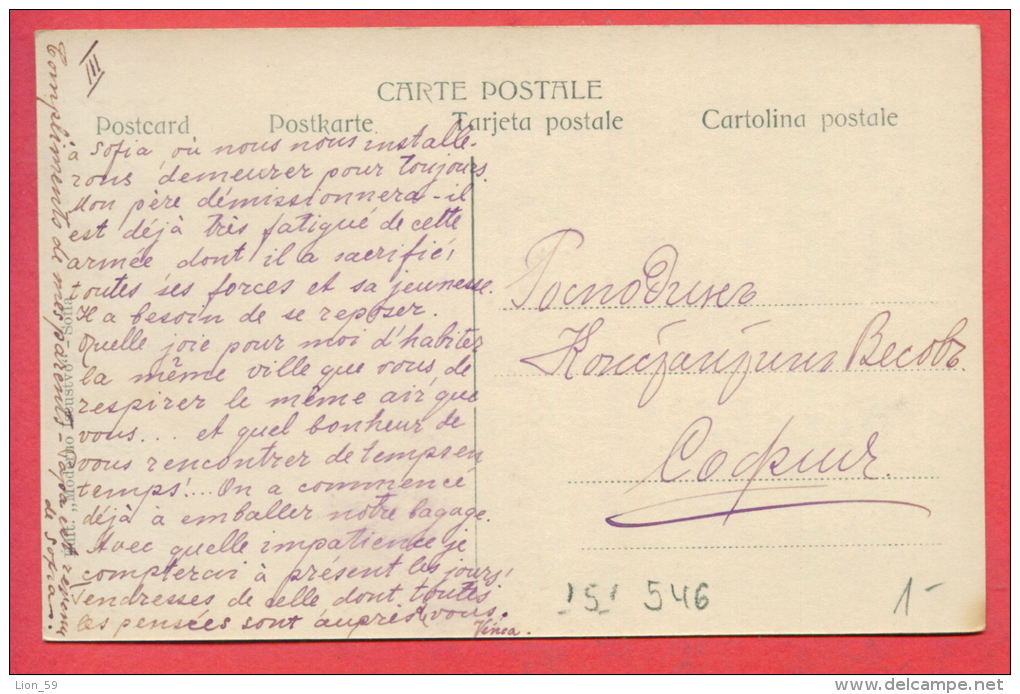 III
CARTE POSTALE
Postcard Postkarte Tarjeta postale Cartolina postale
à Sofia, où nous nous installe-
rons demeurer pour toujours.
Mon père démissionnera - il
est déjà très fatigué de cette
armée dont il a sacrifié
toutes ses forces et sa jeunesse.
Il a besoin de se reposer.
Quelle joie pour moi d'habiter
la même ville que vous, de
respirer le même air que
vous... et quel bonheur de
vous rencontrer de temps en
temps!... On a commencé
déjà à emballer notre bagage.
Avec quelle impatience je
compterai à présent les jours!
Tendresses de celle dont toutes
les pensées sont auprès d. vous.
Vinca.
Compliments de mes parents - revenu
de Sofia.
Edit. „Moderno Iscustvo" Sofia
Господинъ
Константинъ Весовъ
София.
151 546
1-
Lion_59
delcampe.net